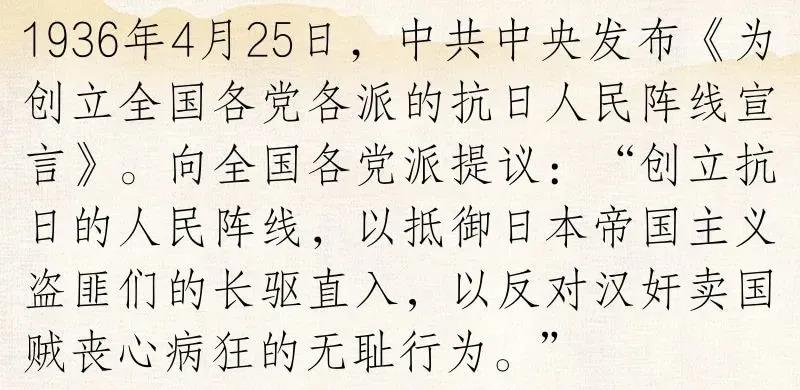 1936年4月25日，中共中央发布《为
创立全国各党各派的抗日人民阵线宣
言》。向全国各党派提议：“创立抗
日的人民阵线，以抵御日本帝国主义
盗匪们的长驱直入，以反对汉奸卖国
贼丧心病狂的无耻行为。”